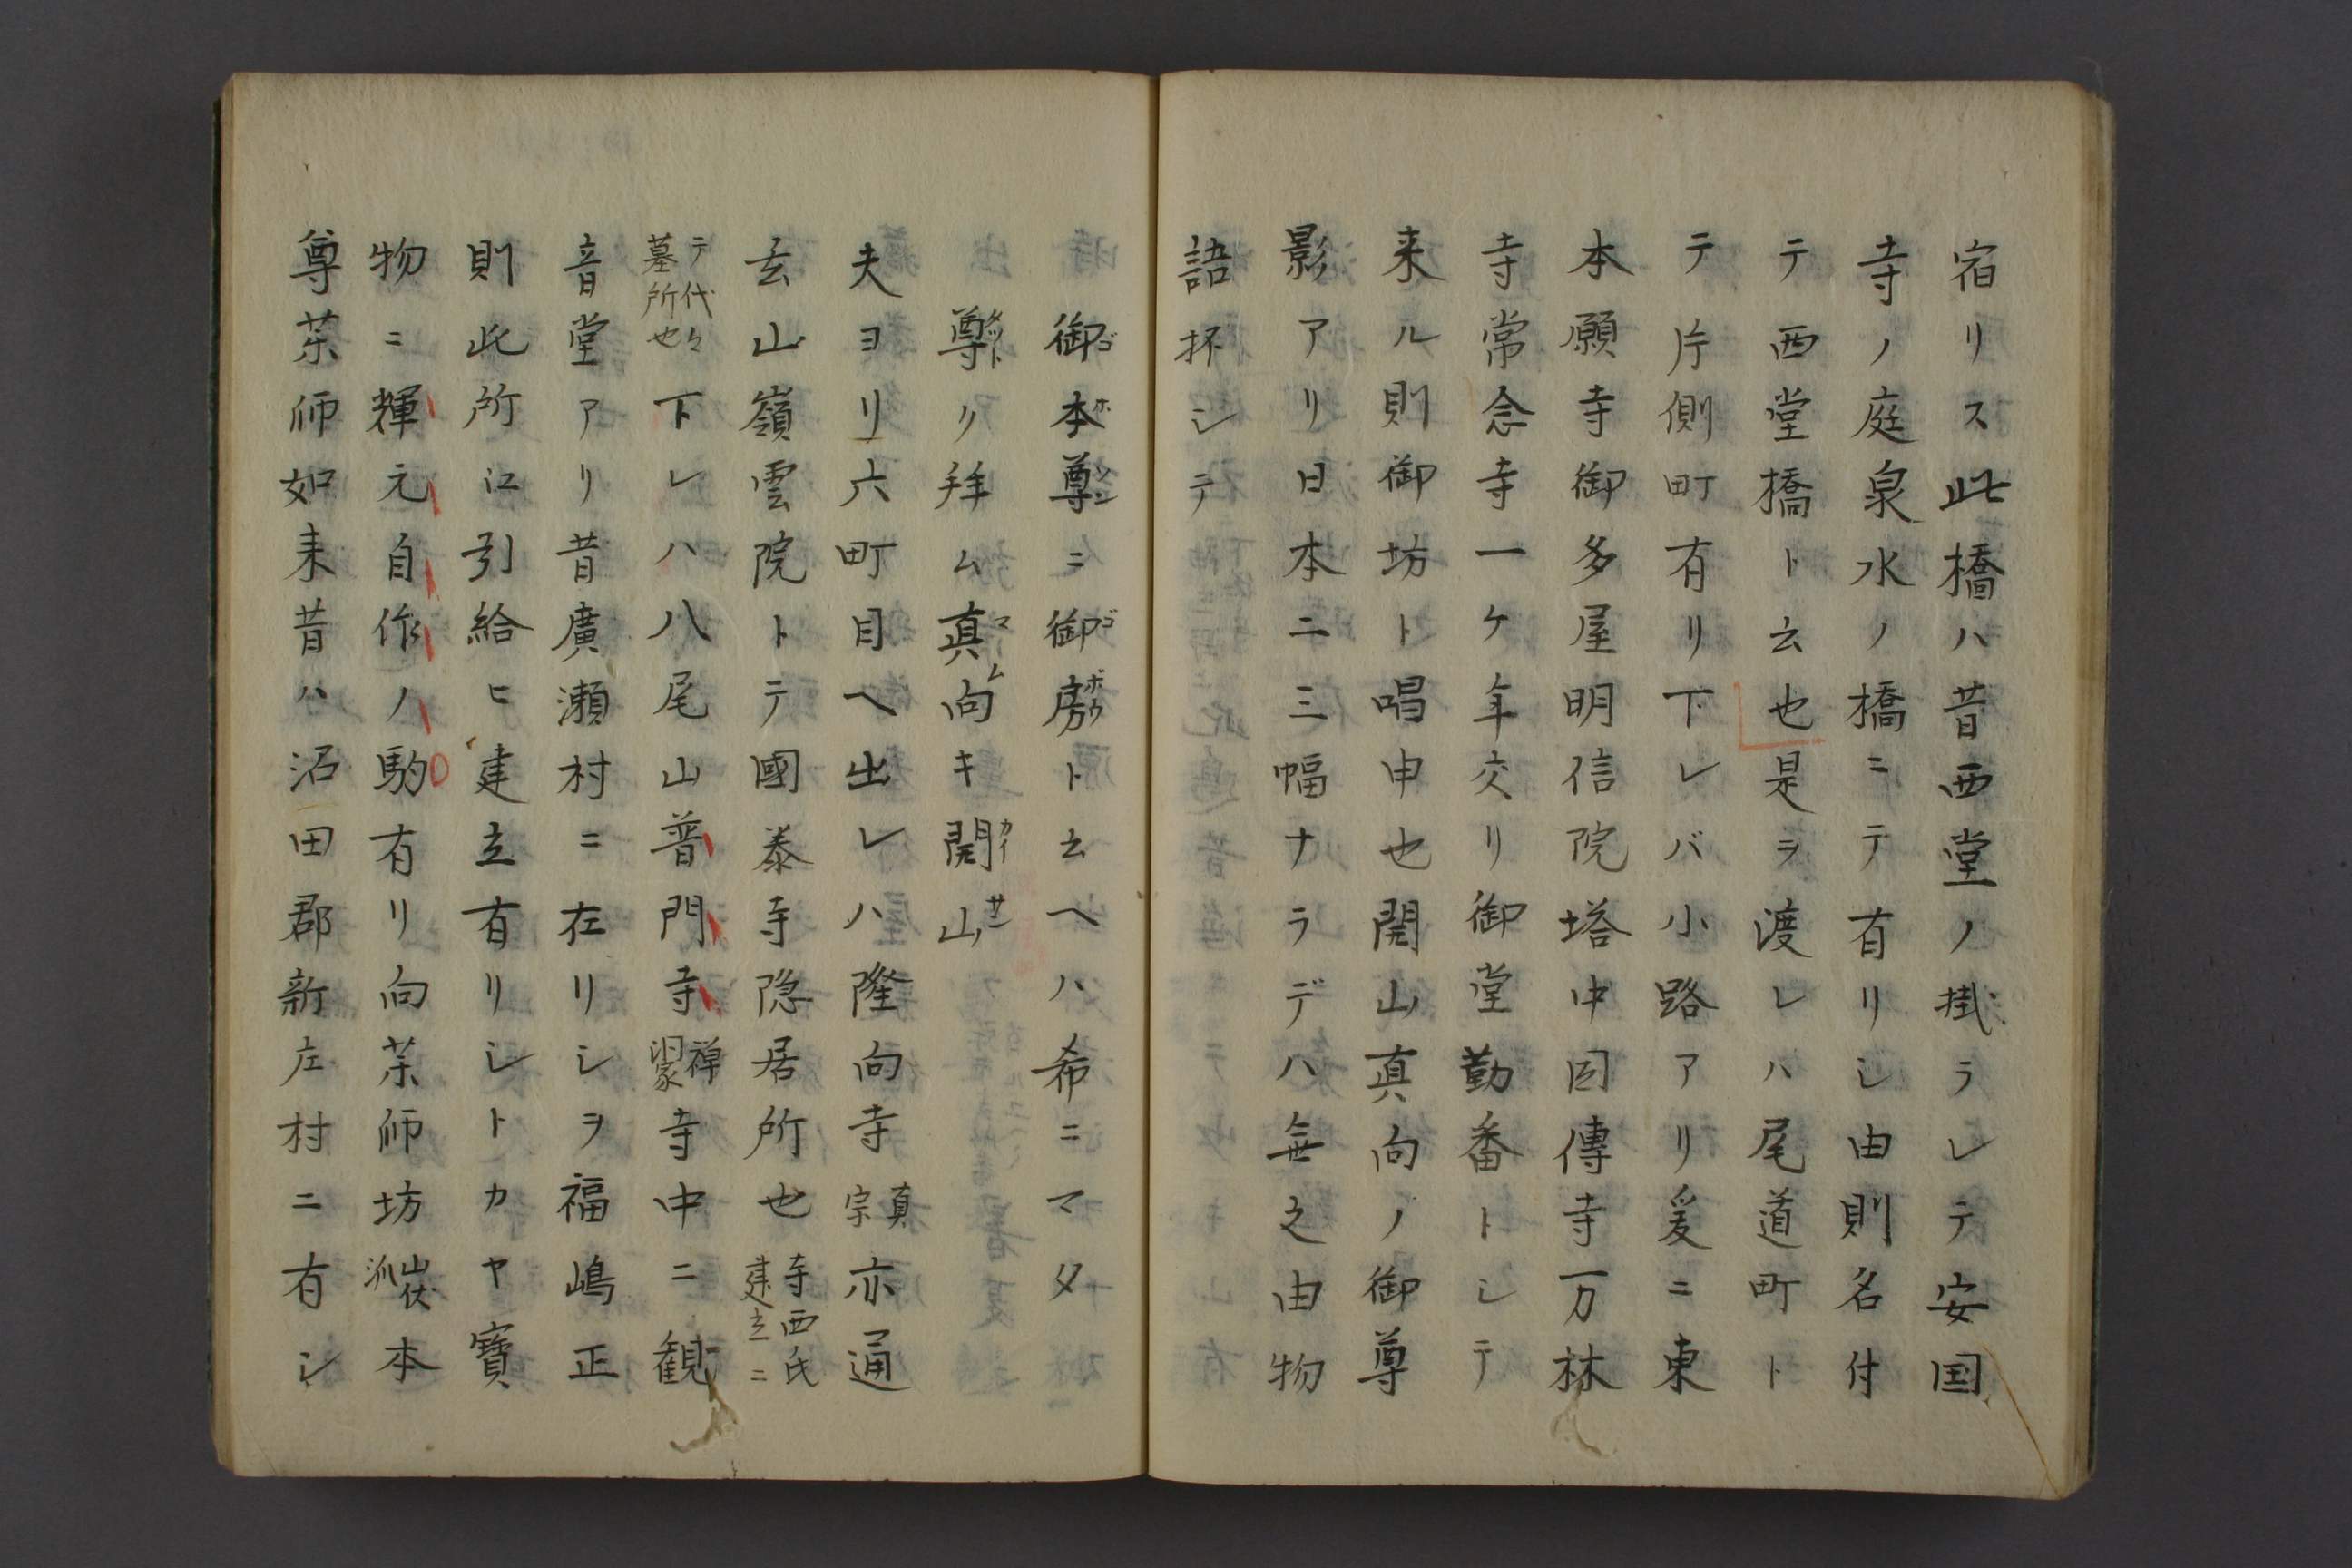 宿リス此橋ハ昔西堂ノ掛ラレテ安国
寺ノ庭泉水ノ橋ニテ有リし由則名付
テ西堂橋ト云也是ヲ渡レハ尾道町ト
テ片側町有リ下レバ小路アリ爰ニ東
本願寺御多屋明信院塔中因傳寺万林
寺常念寺一ケ年交リ御堂勤番トシテ
来ル則御坊ト唱申也開山真向ノ御尊
影アリ日本ニ三幅ナラデハ無之由物
語抔シテ
御本尊ニ御房ト云ヘハ希ニマタ
尊ク拝ム真向キ開山
夫ヨリ六町目ヘ出レハ隆向寺真宗亦通
玄山嶺雲院トテ國泰寺隠居所也寺西氏建立ニ
テ代々墓所也下レハ八尾山普門寺禅洞家寺中ニ観
音堂アリ昔廣瀬村ニ在リシヲ福嶋正
則此所江引給ヒ建立有リシトカヤ寳
物ニ輝元自作ノ駒有リ向茶師坊山伏派本
尊茶師如来昔ハ沼田郡新庄村ニ有シ